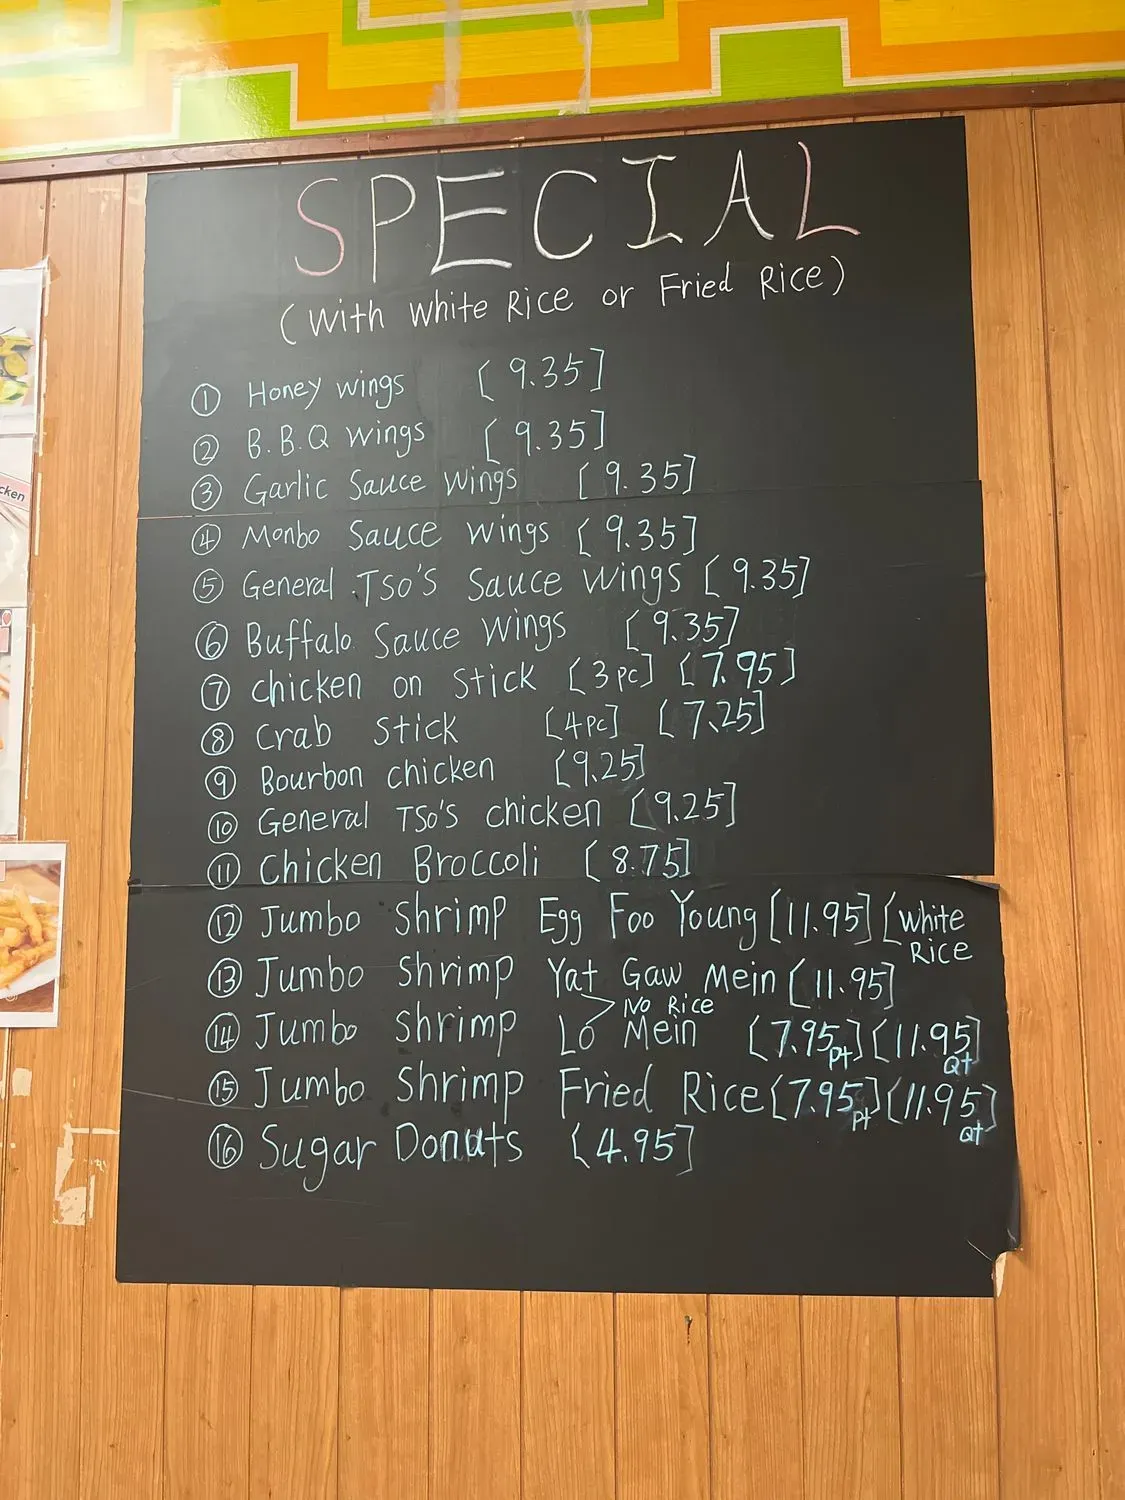 SPECIAL
(With White Rice or Fried Rice)
① Honey wings [9.35]
② B.B.Q wings [9.35]
③ Garlic Sauce Wings [9.35]
④ Monbo Sauce wings [9.35]
⑤ General TSO'S Sauce Wings [9.35]
⑥ Buffalo Sauce Wings [9.35]
⑦ chicken on Stick [3pc] [7.95]
⑧ Crab Stick [4pc] [7.25]
⑨ Bourbon chicken [9.25]
⑩ General TSo's chicken [9.25]
⑪ Chicken Broccoli [8.75]
⑫ Jumbo Shrimp Egg Foo Young [11.95] [White
Rice
⑬ Jumbo Shrimp Yat Gaw Mein [11.95]
No Rice
⑭ Jumbo Shrimp Lo Mein [7.95 Pt] [11.95 Qt]
⑮ Jumbo Shrimp Fried Rice [7.95 Pt] [11.95 Qt]
⑯ Sugar Donuts [4.95]
cken